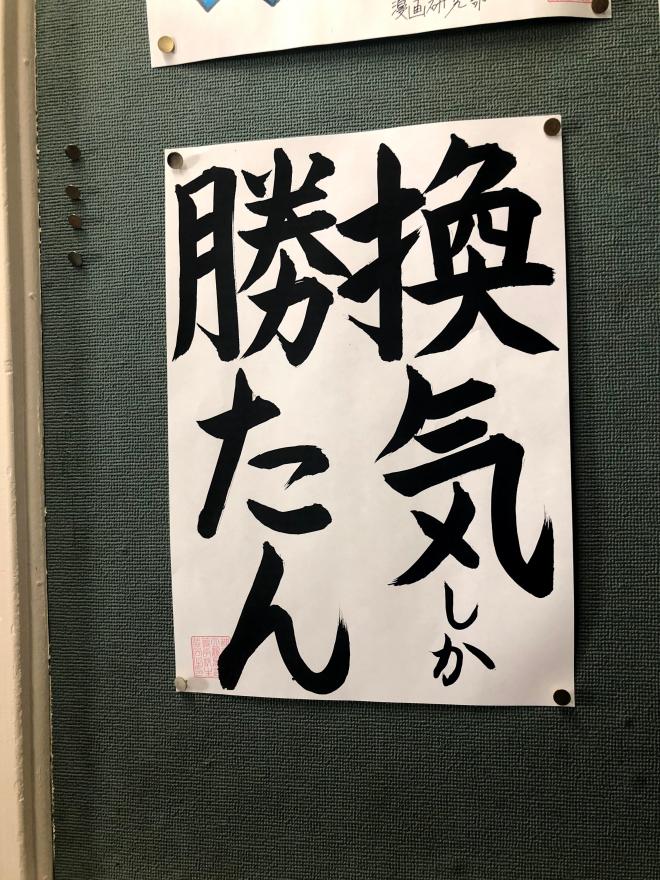 漫画研究部
換気しか
勝たん